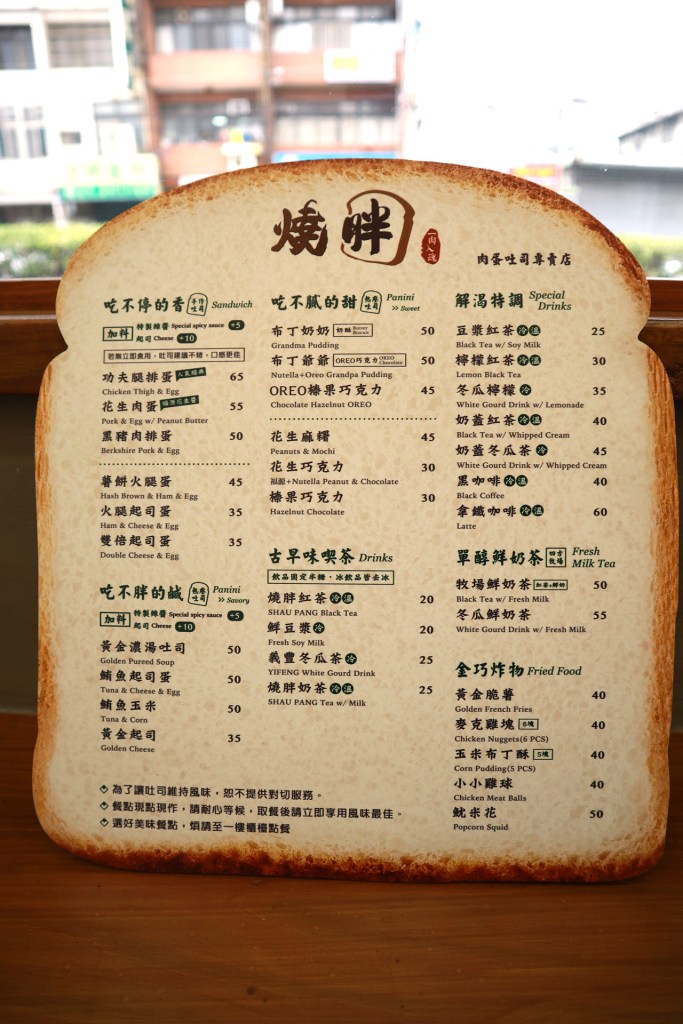 燒胖
一肉入魂
肉蛋吐司專賣店
吃不停的香 手作吐司 Sandwich
加料 特製辣醬 Special spicy sauce +5
起司 Cheese +10
若無立即食用，吐司建議不烤，口感更佳
功夫腿排蛋 人氣經典 65
Chicken Thigh & Egg
花生肉蛋 福源花生醬 55
Pork & Egg w/ Peanut Butter
黑豬肉排蛋 50
Berkshire Pork & Egg
薯餅火腿蛋 45
Hash Brown & Ham & Egg
火腿起司蛋 35
Ham & Cheese & Egg
雙倍起司蛋 35
Double Cheese & Egg
吃不胖的鹹 熱壓吐司 Panini
>> Savory
加料 特製辣醬 Special spicy sauce +5
起司 Cheese +10
黃金濃湯吐司 50
Golden Pureed Soup
鮪魚起司蛋 50
Tuna & Cheese & Egg
鮪魚玉米 50
Tuna & Corn
黃金起司 35
Golden Cheese
吃不膩的甜 熱壓吐司 Panini
>> Sweet
布丁奶奶 奶酥 Butter Biscuit 50
Grandma Pudding
布丁爺爺 OREO巧克力 OREO Chocolate 50
Nutella+Oreo Grandpa Pudding
OREO榛果巧克力 45
Chocolate Hazelnut OREO
花生麻糬 45
Peanuts & Mochi
花生巧克力 30
福源+Nutella Peanut & Chocolate
榛果巧克力 30
Hazelnut Chocolate
古早味喫茶 Drinks
飲品固定半糖，冰飲品皆去冰
燒胖紅茶 冷 溫 20
SHAU PANG Black Tea
鮮豆漿 冷 20
Fresh Soy Milk
義豐冬瓜茶 冷 25
YIFENG White Gourd Drink
燒胖奶茶 冷 溫 25
SHAU PANG Tea w/ Milk
解渴特調 Special
Drinks
豆漿紅茶 冷 溫 25
Black Tea w/ Soy Milk
檸檬紅茶 冷 溫 30
Lemon Black Tea
冬瓜檸檬 冷 35
White Gourd Drink w/ Lemonade
奶蓋紅茶 冷 溫 40
Black Tea w/ Whipped Cream
奶蓋冬瓜茶 冷 45
White Gourd Drink w/ Whipped Cream
黑咖啡 冷 溫 40
Black Coffee
拿鐵咖啡 冷 溫 60
Latte
單醇鮮奶茶 四方牧場 Fresh
Milk Tea
牧場鮮奶茶 紅茶+鮮奶 50
Black Tea w/ Fresh Milk
冬瓜鮮奶 55
White Gourd Drink w/ Fresh Milk
金巧炸物 Fried Food
黃金脆薯 40
Golden French Fries
麥克雞塊 6塊 40
Chicken Nuggets(6 PCS)
玉米布丁酥 5塊 40
Corn Pudding(5 PCS)
小小雞球 40
Chicken Meat Balls
魷米花 50
Popcorn Squid
為了讓吐司維持風味，恕不提供對切服務。
餐點現點現作，請耐心等候，取餐後請立即享用風味最佳。
選好美味餐點，煩請至一樓櫃檯點餐